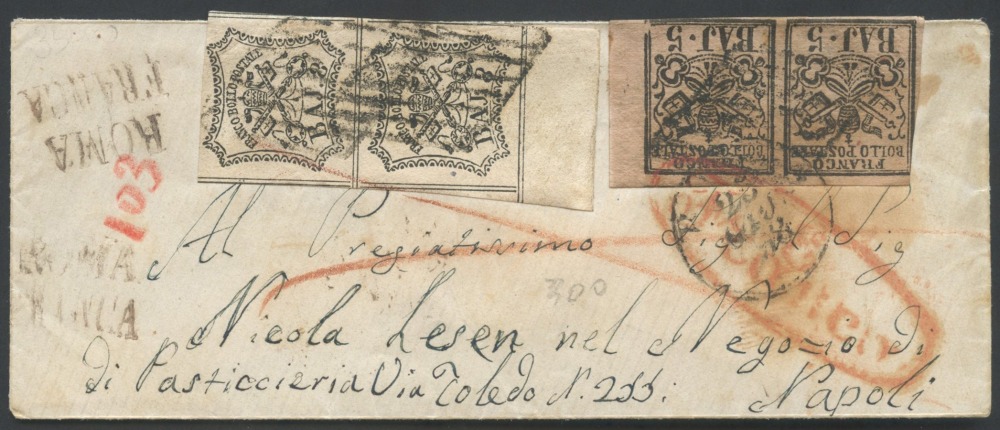 FRANCO BOLLO POSTALE
BAJ 8
FRANCO BOLLO POSTALE
BAJ 8
BAJ·5
BAJ·5
FRANCO
BOLLO POSTALE
FRANCO
BOLLO POSTALE
ROMA
FRANCA
103
Al Pregiatissimo Sig. il Sig
300
Nicola Lesen nel Negozio di
di Pasticcieria Via Toledo N. 255:
Napoli